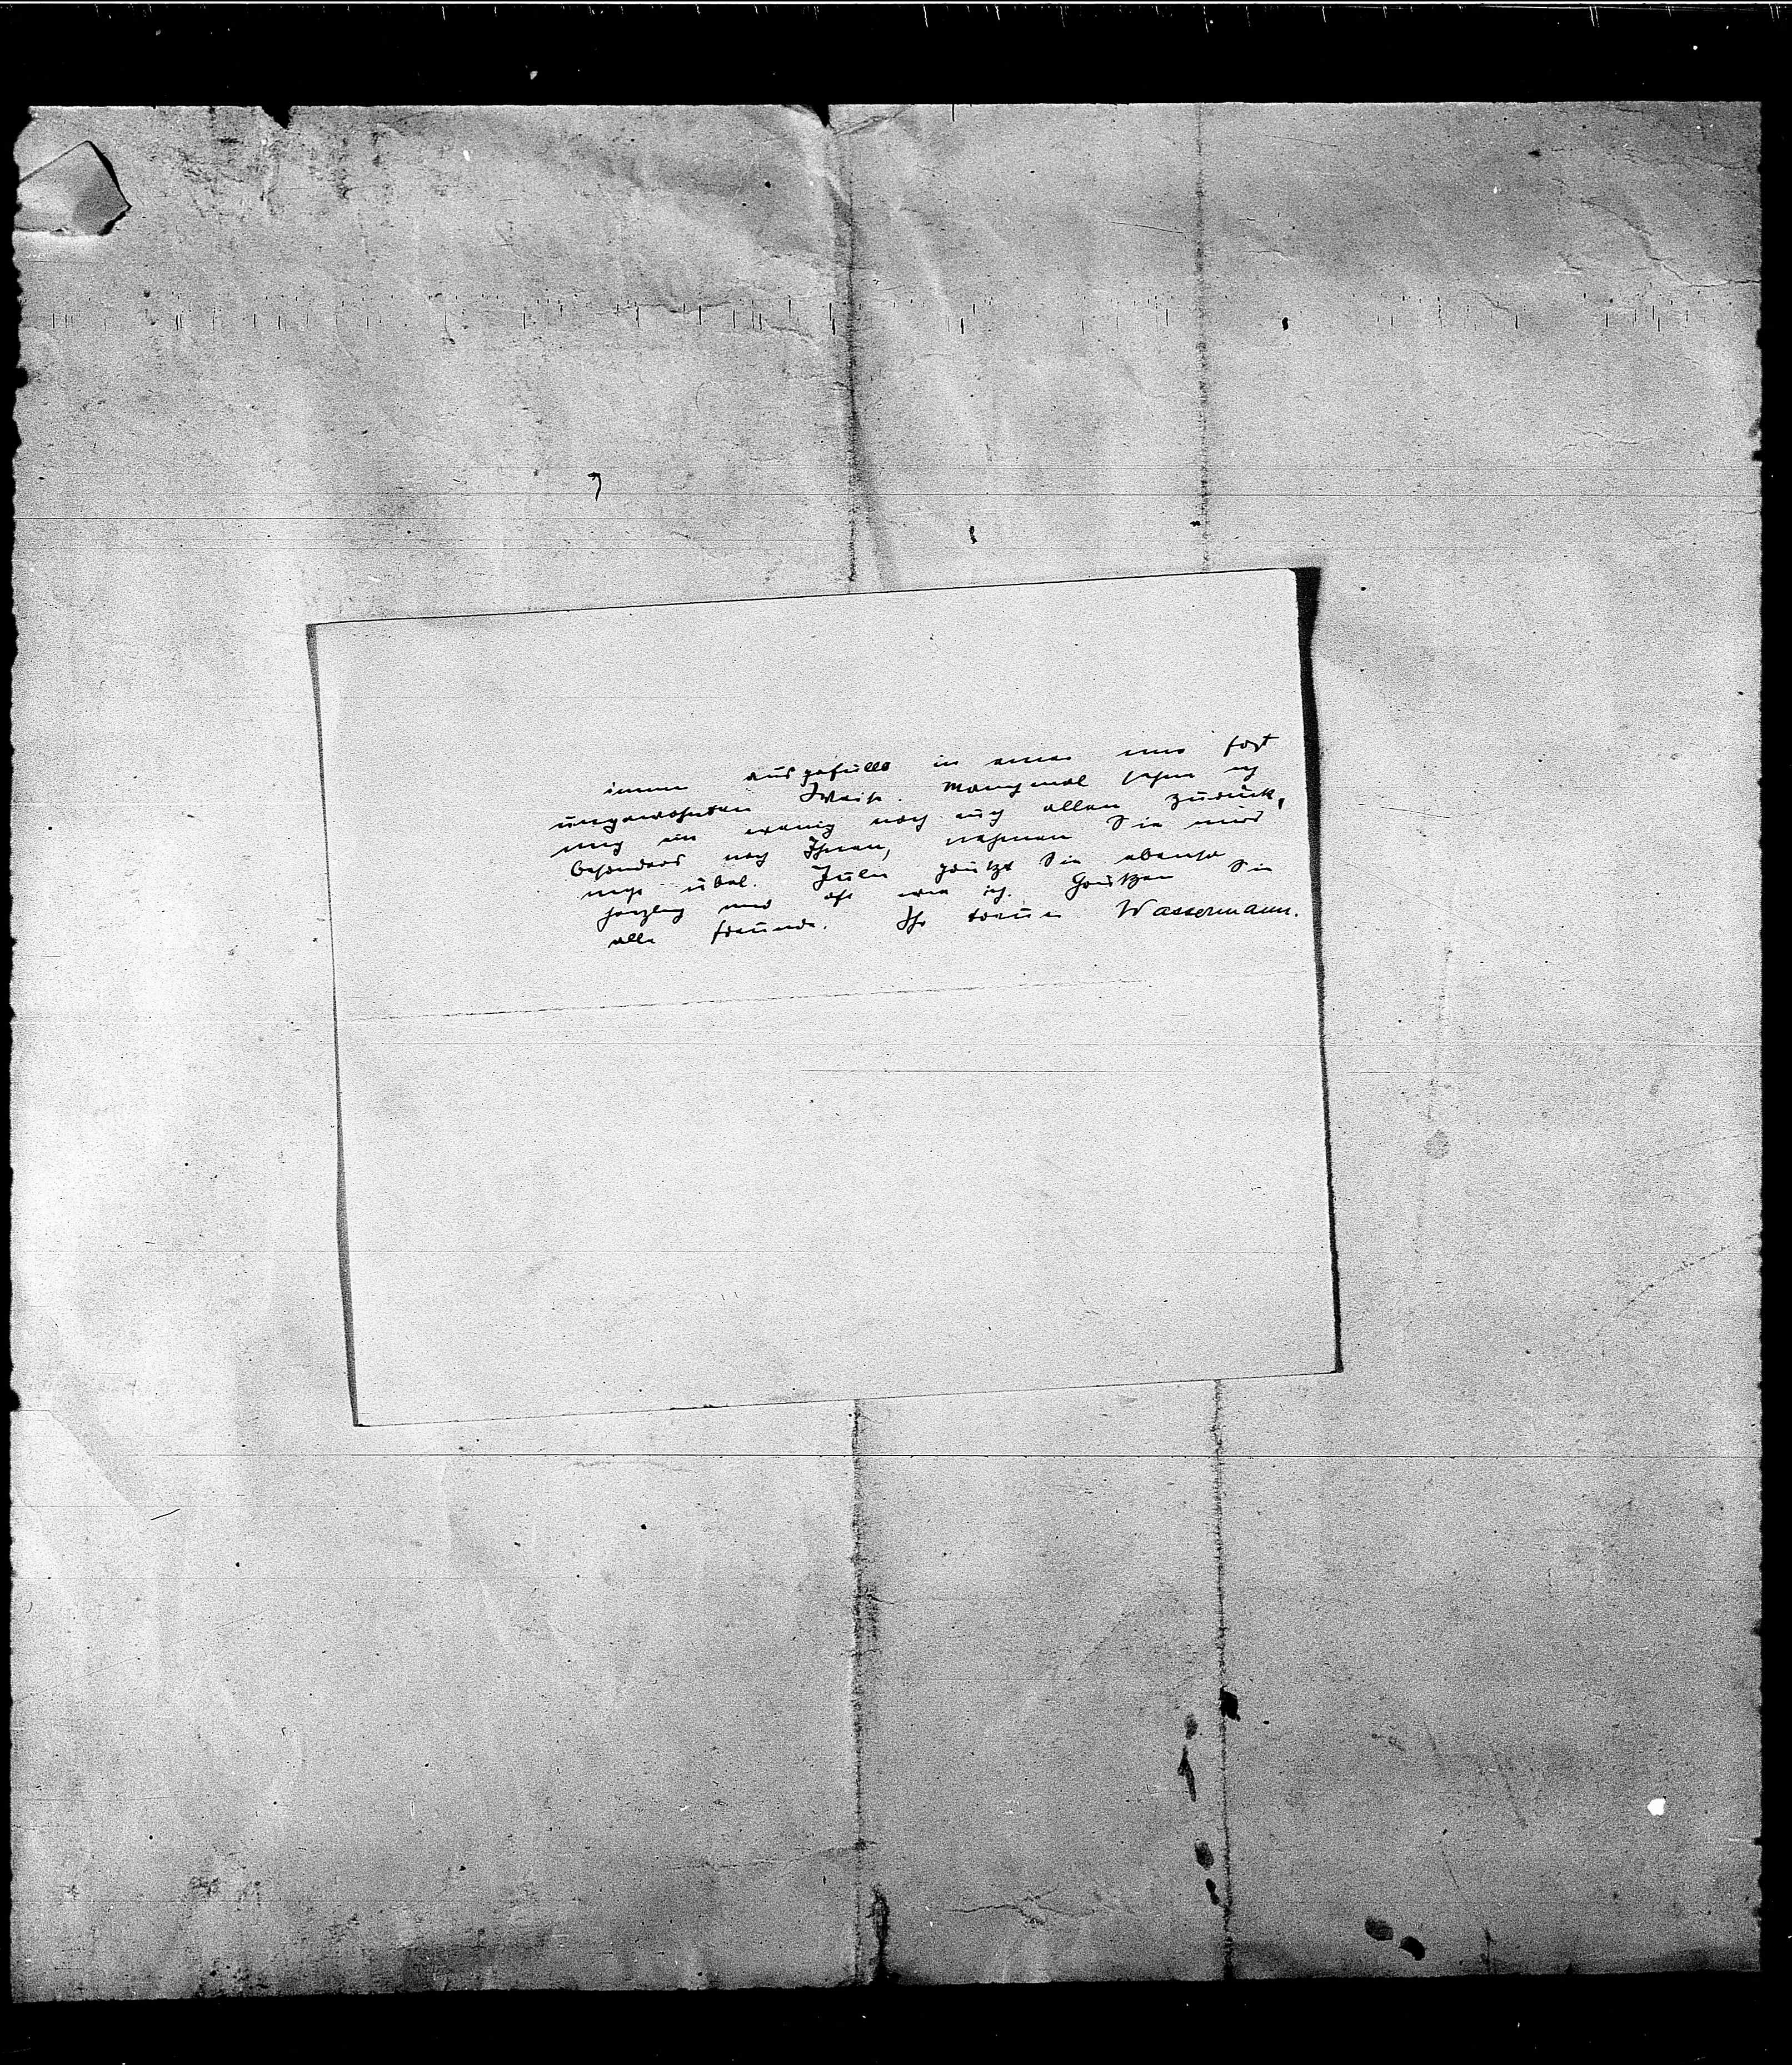 immer ausgefüllt in einer uns fast
ungewohnten Weise. Manchmal sehne ich
mich ein wenig nach euch allen zurück,
besonders nach Ihnen, nehmen Sie mirs
nicht übel. Julie grüßt Sie ebenso
herzlich und oft wie ich. Grüßen Sie
alle Freunde. Ihr treuer Wassermann.